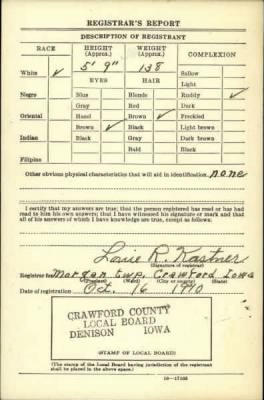 REGISTRAR'S REPORT
DESCRIPTION OF REGISTRANT
RACE HEIGHT (Approx.) WEIGHT (Approx.) COMPLEXION
White ✓ 5' 9" 138 Sallow
EYES HAIR Light
Negro Blue Blonde Ruddy ✓
Gray Red Dark
Oriental Hazel Brown ✓ Freckled
Brown ✓ Black Light brown
Indian Black Gray Dark brown
Bald Black
Filipino
Other obvious physical characteristics that will aid in identification none
I certify that my answers are true; that the person registered has read or has had
read to him his own answers; that I have witnessed his signature or mark and that
all of his answers of which I have knowledge are true, except as follows:
Losie R. Kastner
(Signature of registrar)
Registrar for Morgan Twp. Crawford Iowa
(Precinct) (Ward) (City or county) (State)
Date of registration Oct. 16 1940
CRAWFORD COUNTY
LOCAL BOARD
DENISON IOWA
(STAMP OF LOCAL BOARD)
(The stamp of the Local Board having jurisdiction of the registrant
shall be placed in the above space.)